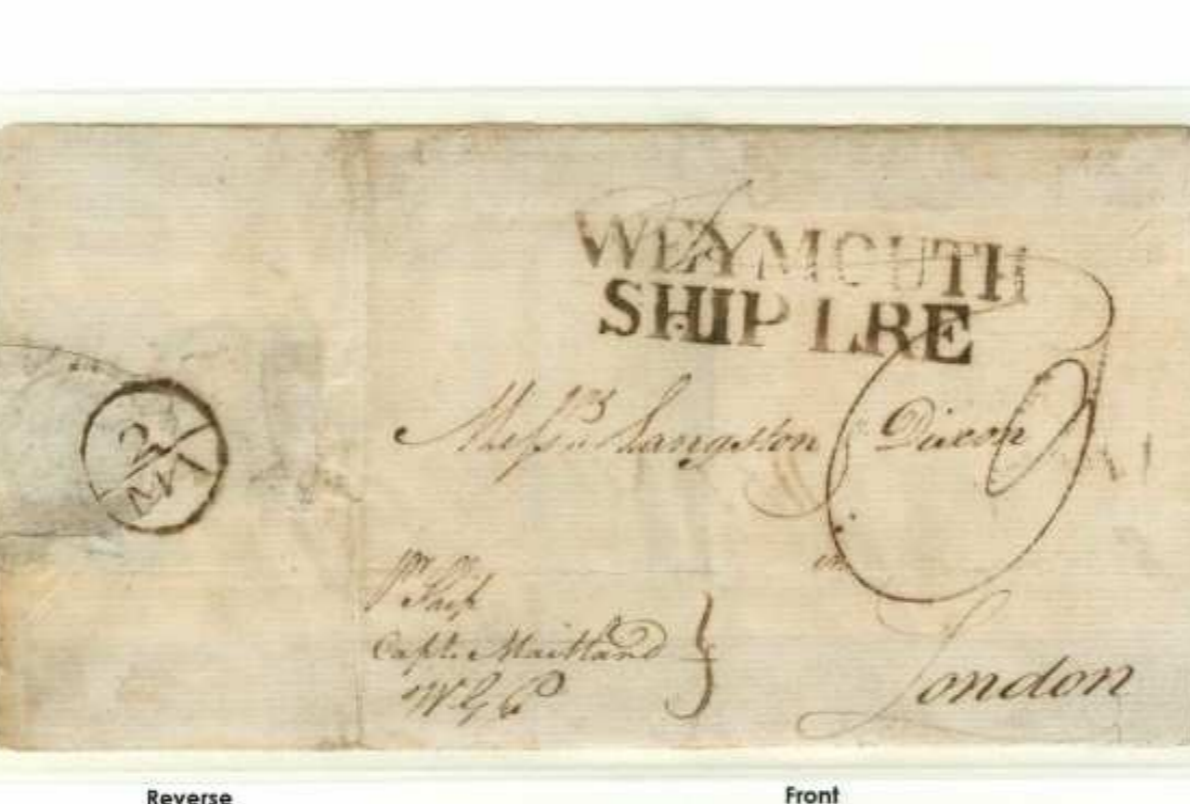 WEYMOUTH
SHIP LRE
Messrs Langston & Dixon
in
London
Pr Ship
Capt. Maitland
2
MA
Reverse
Front